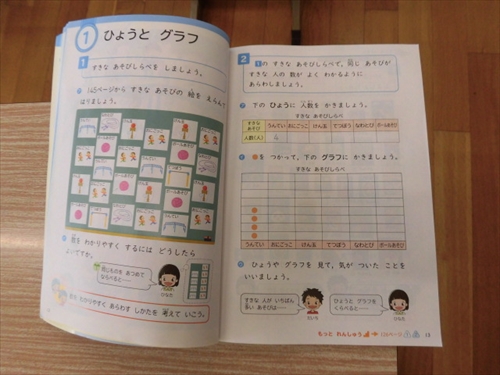 1 ひょうと グラフ
1
すきな あそびしらべを しましょう。
145ページから すきな あそびの 絵を えらんで
はりましょう。
数を わかりやすく するには どうしたら
よいですか。
同じものを あつめて
ならべると……
ひなた
わかりやすく あらわす しかたを 考えて いこう。
2
1の すきな あそびしらべで、同じ あそびが
すきな 人の 数が よく わかるように
あらわしましょう。
下の ひょうに 人数を かきましょう。
すきな あそびしらべ
すきな あそび うんてい おにごっこ けんだま てつぼう なわとび ボールあそび
人数(人) 4
●を つかって、下の グラフに かきましょう。
すきな あそびしらべ
うんてい おにごっこ けんだま てつぼう なわとび ボールあそび
ひょうや グラフを 見て、気が ついた ことを
いいましょう。
すきな 人が いちばん
多い あそびは……
ひょうと グラフを
くらべると……
ひなた
もっと れんしゅう
13